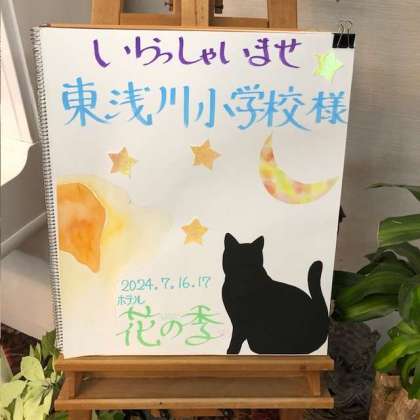 いらっしゃいませ
東浅川小学校様
2024.7.16.17
ホテル
花の季